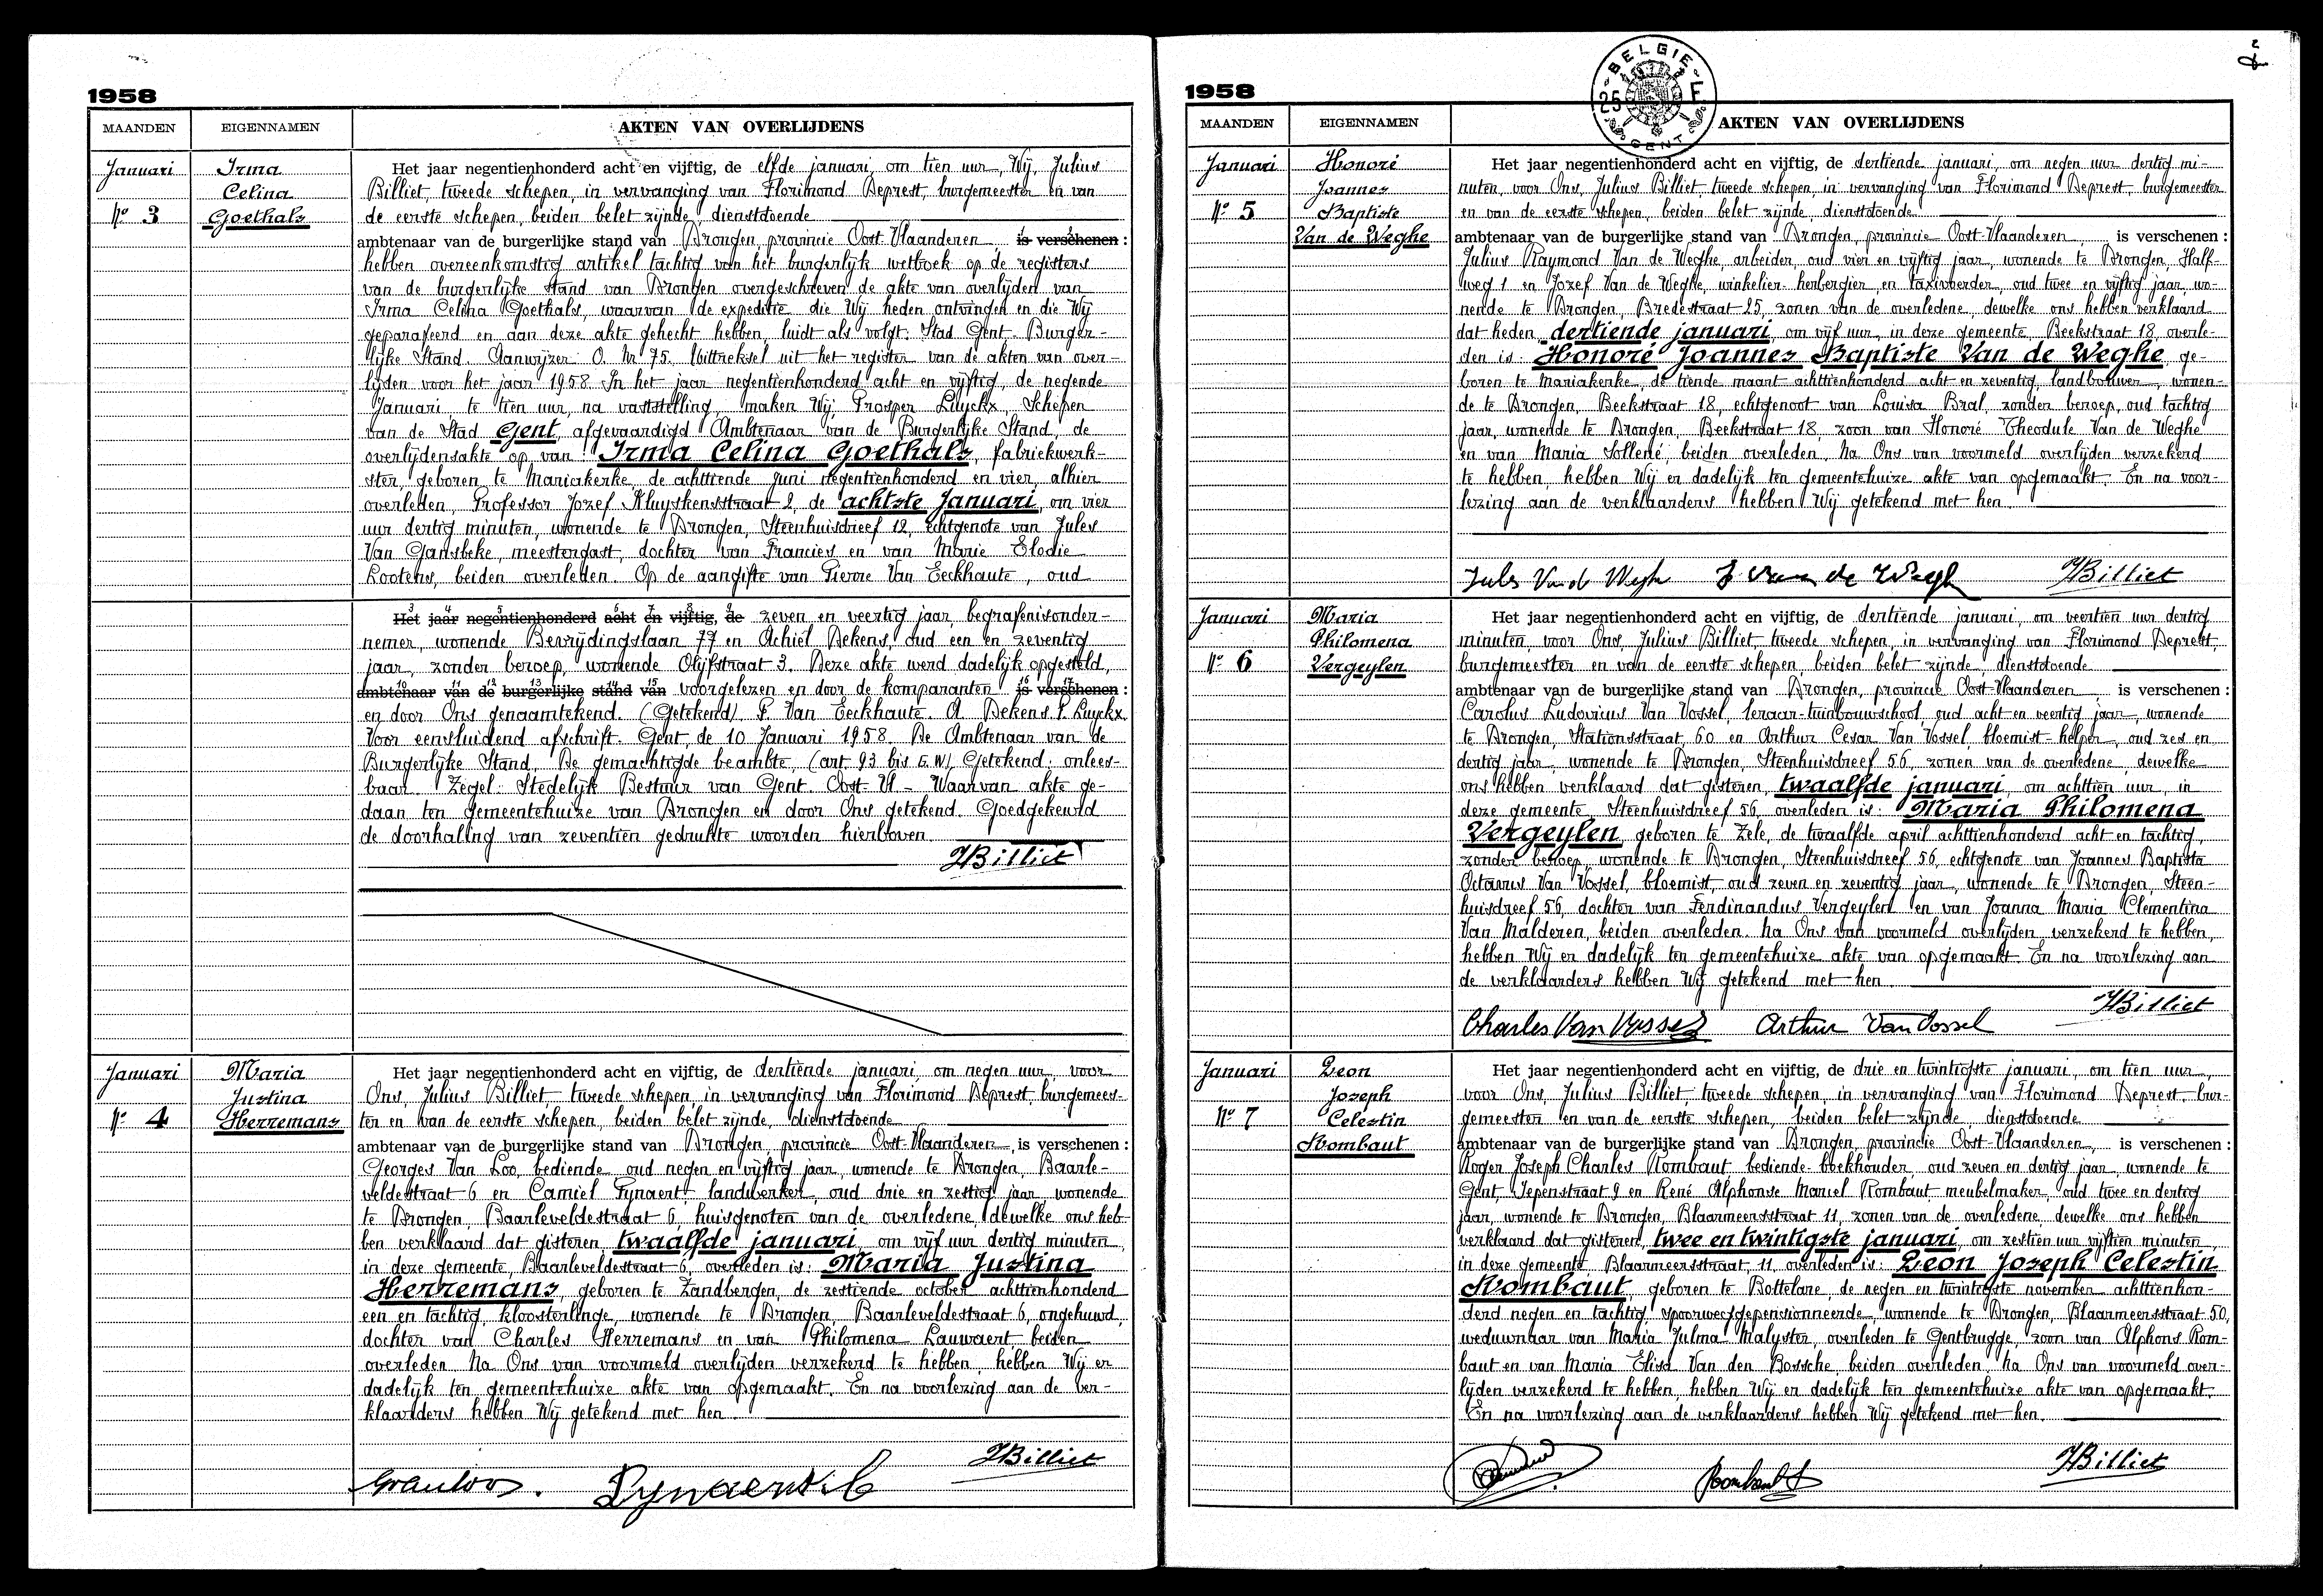 1958
MAANDEN
EIGENNAMEN
AKTEN VAN OVERLIJDENS
Januari
Nº 3
Irma
Celina
Goethals
Het jaar negentienhonderd acht en vijftig, de elfde januari, om tien uur, Wij, Julius
Billiet, tweede schepen, in vervanging van Florimond Deprest, burgemeester en van
de eerste schepen, beiden belet zijnde, dienstdoende
ambtenaar van de burgerlijke stand van Drongen, provincie Oost-Vlaanderen, is verschenen :
hebben overeenkomstig artikel tachtig van het burgerlijk wetboek op de registers
van de burgerlijke stand van Drongen overgeschreven de akte van overlijden van
Irma Celina Goethals, waarvan de expeditie die Wij heden ontvingen en die Wij
geparafeerd en aan deze akte gehecht hebben, luidt als volgt: Stad Gent - Burger-
lijke Stand. Aanwijzer O. Nr 75. Uittreksel uit het register van de akten van over-
lijden voor het jaar 1958. In het jaar negentienhonderd acht en vijftig, de negende
Januari, te tien uur, na vaststelling, maken Wij, Prosper Luyckx, Schepen
van de Stad Gent, afgevaardigd Ambtenaar van de Burgerlijke Stand, de
overlijdensakte op van: Irma Celina Goethals, fabriekwerk-
ster, geboren te Mariakerke de achttiende Juni negentienhonderd en vier, alhier
overleden, Professor Jozef Kluyskensstraat 2, de achtste Januari, om vier
uur dertig minuten, wonende te Drongen, Steenhuisdreef 12, echtgenote van Jules
Van Gansbeke, meestergast, dochter van Francies en van Marie Elodie
Lootens, beiden overleden. Op de aangifte van Pierre Van Eeckhaute, oud
3 4 5 6 7 8 9
Het jaar negentienhonderd acht en vijftig, de zeven en veertig jaar, begrafenisonder-
nemer, wonende Bevrijdingslaan 77 en Achiel Dekens, oud een en zeventig
jaar, zonder beroep, wonende Olijfstraat 3. Deze akte werd dadelijk opgesteld,
10 11 12 13 14 15 16 17
ambtenaar van de burgerlijke stand van voorgelezen en door de komparanten is verschenen :
en door Ons genaamtekend. (Getekend). P. Van Eeckhaute. A. Dekens. P. Luyckx.
Voor eensluidend afschrift. Gent, de 10 Januari 1958. De Ambtenaar van de
Burgerlijke Stand, De gemachtigde beambte, (art. 93 bis G.W) Getekend: onlees-
baar. Zegel: Stedelijk Bestuur van Gent. Oost-Vl - Waarvan akte ge-
daan ten gemeentehuize van Drongen en door Ons getekend. Goedgekeurd
de doorhaling van zeventien gedrukte woorden hierboven.
JBilliet
Januari
Nº 4
Maria
Justina
Herremans
Het jaar negentienhonderd acht en vijftig, de dertiende januari, om negen uur, voor
Ons, Julius Billiet, tweede schepen, in vervanging van Florimond Deprest, burgemees-
ter en van de eerste schepen, beiden belet zijnde, dienstdoende
ambtenaar van de burgerlijke stand van Drongen, provincie Oost-Vlaanderen, is verschenen :
Georges Van Loo, bediende, oud negen en vijftig jaar, wonende te Drongen, Baarle-
veldestraat 6 en Camiel Pynaert, landwerker, oud drie en zestig jaar, wonende
te Drongen, Baarleveldestraat 6, huisgenoten van de overledene, dewelke ons heb-
ben verklaard dat gisteren, twaalfde januari, om vijf uur dertig minuten,
in deze gemeente, Baarleveldestraat 6, overleden is: Maria Justina
Herremans, geboren te Zandbergen, de zestiende october achttienhonderd
een en tachtig, kloosterlinge, wonende te Drongen, Baarleveldestraat 6, ongehuwd,
dochter van Charles Herremans en van Philomena Lauwaert beiden
overleden. Na Ons van voormeld overlijden verzekerd te hebben, hebben Wij er
dadelijk ten gemeentehuize akte van opgemaakt. En na voorlezing aan de ver-
klaarders hebben Wij getekend met hen.
JBilliet
GVanloo.
Pynaert C
1958
BELGIE
25 F
GENT
2
MAANDEN
EIGENNAMEN
AKTEN VAN OVERLIJDENS
Januari
Nº 5
Honoré
Joannes
Baptiste
Van de Weghe
Het jaar negentienhonderd acht en vijftig, de dertiende januari, om negen uur dertig mi-
nuten, voor Ons, Julius Billiet, tweede schepen, in vervanging van Florimond Deprest, burgemeester
en van de eerste schepen, beiden belet zijnde, dienstdoende
ambtenaar van de burgerlijke stand van Drongen, provincie Oost-Vlaanderen, is verschenen :
Julius Raymond Van de Weghe, arbeider, oud vier en vijftig jaar, wonende te Drongen, Half-
weg 1 en Jozef Van de Weghe, winkelier-herbergier en taxivoerder, oud twee en vijftig jaar, wo-
nende te Drongen, Bredestraat 25, zonen van de overledene, dewelke ons hebben verklaard
dat heden, dertiende januari, om vijf uur, in deze gemeente, Beekstraat 18, overle-
den is: Honoré Joannes Baptiste Van de Weghe, ge-
boren te Mariakerke, de tiende maart achttienhonderd acht en zeventig, landbouwer, wonen-
de te Drongen, Beekstraat 18, echtgenoot van Louisa Bral, zonder beroep, oud tachtig
jaar, wonende te Drongen, Beekstraat 18, zoon van Honoré Theodule Van de Weghe
en van Maria Sollené, beiden overleden. Na Ons van voormeld overlijden verzekerd
te hebben, hebben Wij er dadelijk ten gemeentehuize akte van opgemaakt. En na voor-
lezing aan de verklaarders hebben Wij getekend met hen.
Jules Van de Weghe J Van de Weghe JBilliet
Januari
Nº 6
Maria
Philomena
Vergeylen
Het jaar negentienhonderd acht en vijftig, de dertiende januari, om veertien uur dertig
minuten, voor Ons, Julius Billiet, tweede schepen, in vervanging van Florimond Deprest,
burgemeester en van de eerste schepen, beiden belet zijnde, dienstdoende
ambtenaar van de burgerlijke stand van Drongen, provincie Oost-Vlaanderen, is verschenen :
Carolus Ludovicus Van Vossel, leraar-tuinbouwschool, oud acht en veertig jaar, wonende
te Drongen, Stationsstraat, 60 en Arthur Cesar Van Vossel, bloemist-helper, oud zes en
dertig jaar, wonende te Drongen, Steenhuisdreef 56, zonen van de overledene, dewelke
ons hebben verklaard dat gisteren, twaalfde januari, om achttien uur, in
deze gemeente, Steenhuisdreef 56, overleden is: Maria Philomena
Vergeylen, geboren te Zele, de twaalfde april achttienhonderd acht en tachtig,
zonder beroep, wonende te Drongen, Steenhuisdreef 56, echtgenote van Joannes Baptista
Octavus Van Vossel, bloemist, oud zeven en zeventig jaar, wonende te Drongen, Steen-
huisdreef 56, dochter van Ferdinandus Vergeylen en van Joanna Maria Clementina
Van Malderen, beiden overleden. Na Ons van voormeld overlijden verzekerd te hebben,
hebben Wij er dadelijk ten gemeentehuize akte van opgemaakt. En na voorlezing aan
de verklaarders hebben Wij getekend met hen.
JBilliet
Charles Van Vossel Arthur Van Vossel
Januari
Nº 7
Leon
Joseph
Celestin
Rombaut
Het jaar negentienhonderd acht en vijftig, de drie en twintigste januari, om tien uur,
voor Ons, Julius Billiet, tweede schepen, in vervanging van Florimond Deprest, bur-
gemeester en van de eerste schepen, beiden belet zijnde, dienstdoende
ambtenaar van de burgerlijke stand van Drongen, provincie Oost-Vlaanderen, is verschenen :
Roger Joseph Charles Rombaut bediende-boekhouder, oud zeven en dertig jaar, wonende te
Gent, Iepenstraat 9 en René Alphonse Marcel Rombaut, meubelmaker, oud twee en dertig
jaar, wonende te Drongen, Blaarmeersstraat 11, zonen van de overledene, dewelke ons hebben
verklaard dat gisteren, twee en twintigste januari, om zestien uur vijftien minuten,
in deze gemeente, Blaarmeersstraat, 11, overleden is: Leon Joseph Celestin
Rombaut, geboren te Bottelare, de negen en twintigste november achttienhon-
derd negen en tachtig, spoorweggepensionneerde, wonende te Drongen, Blaarmeersstraat 50,
weduwnaar van Maria Julma Malyster, overleden te Gentbrugge, zoon van Alphons Rom-
baut en van Maria Elisa Van den Bossche, beiden overleden. Na Ons van voormeld over-
lijden verzekerd te hebben, hebben Wij er dadelijk ten gemeentehuize akte van opgemaakt.
En na voorlezing aan de verklaarders hebben Wij getekend met hen.
Rombaut
JBilliet